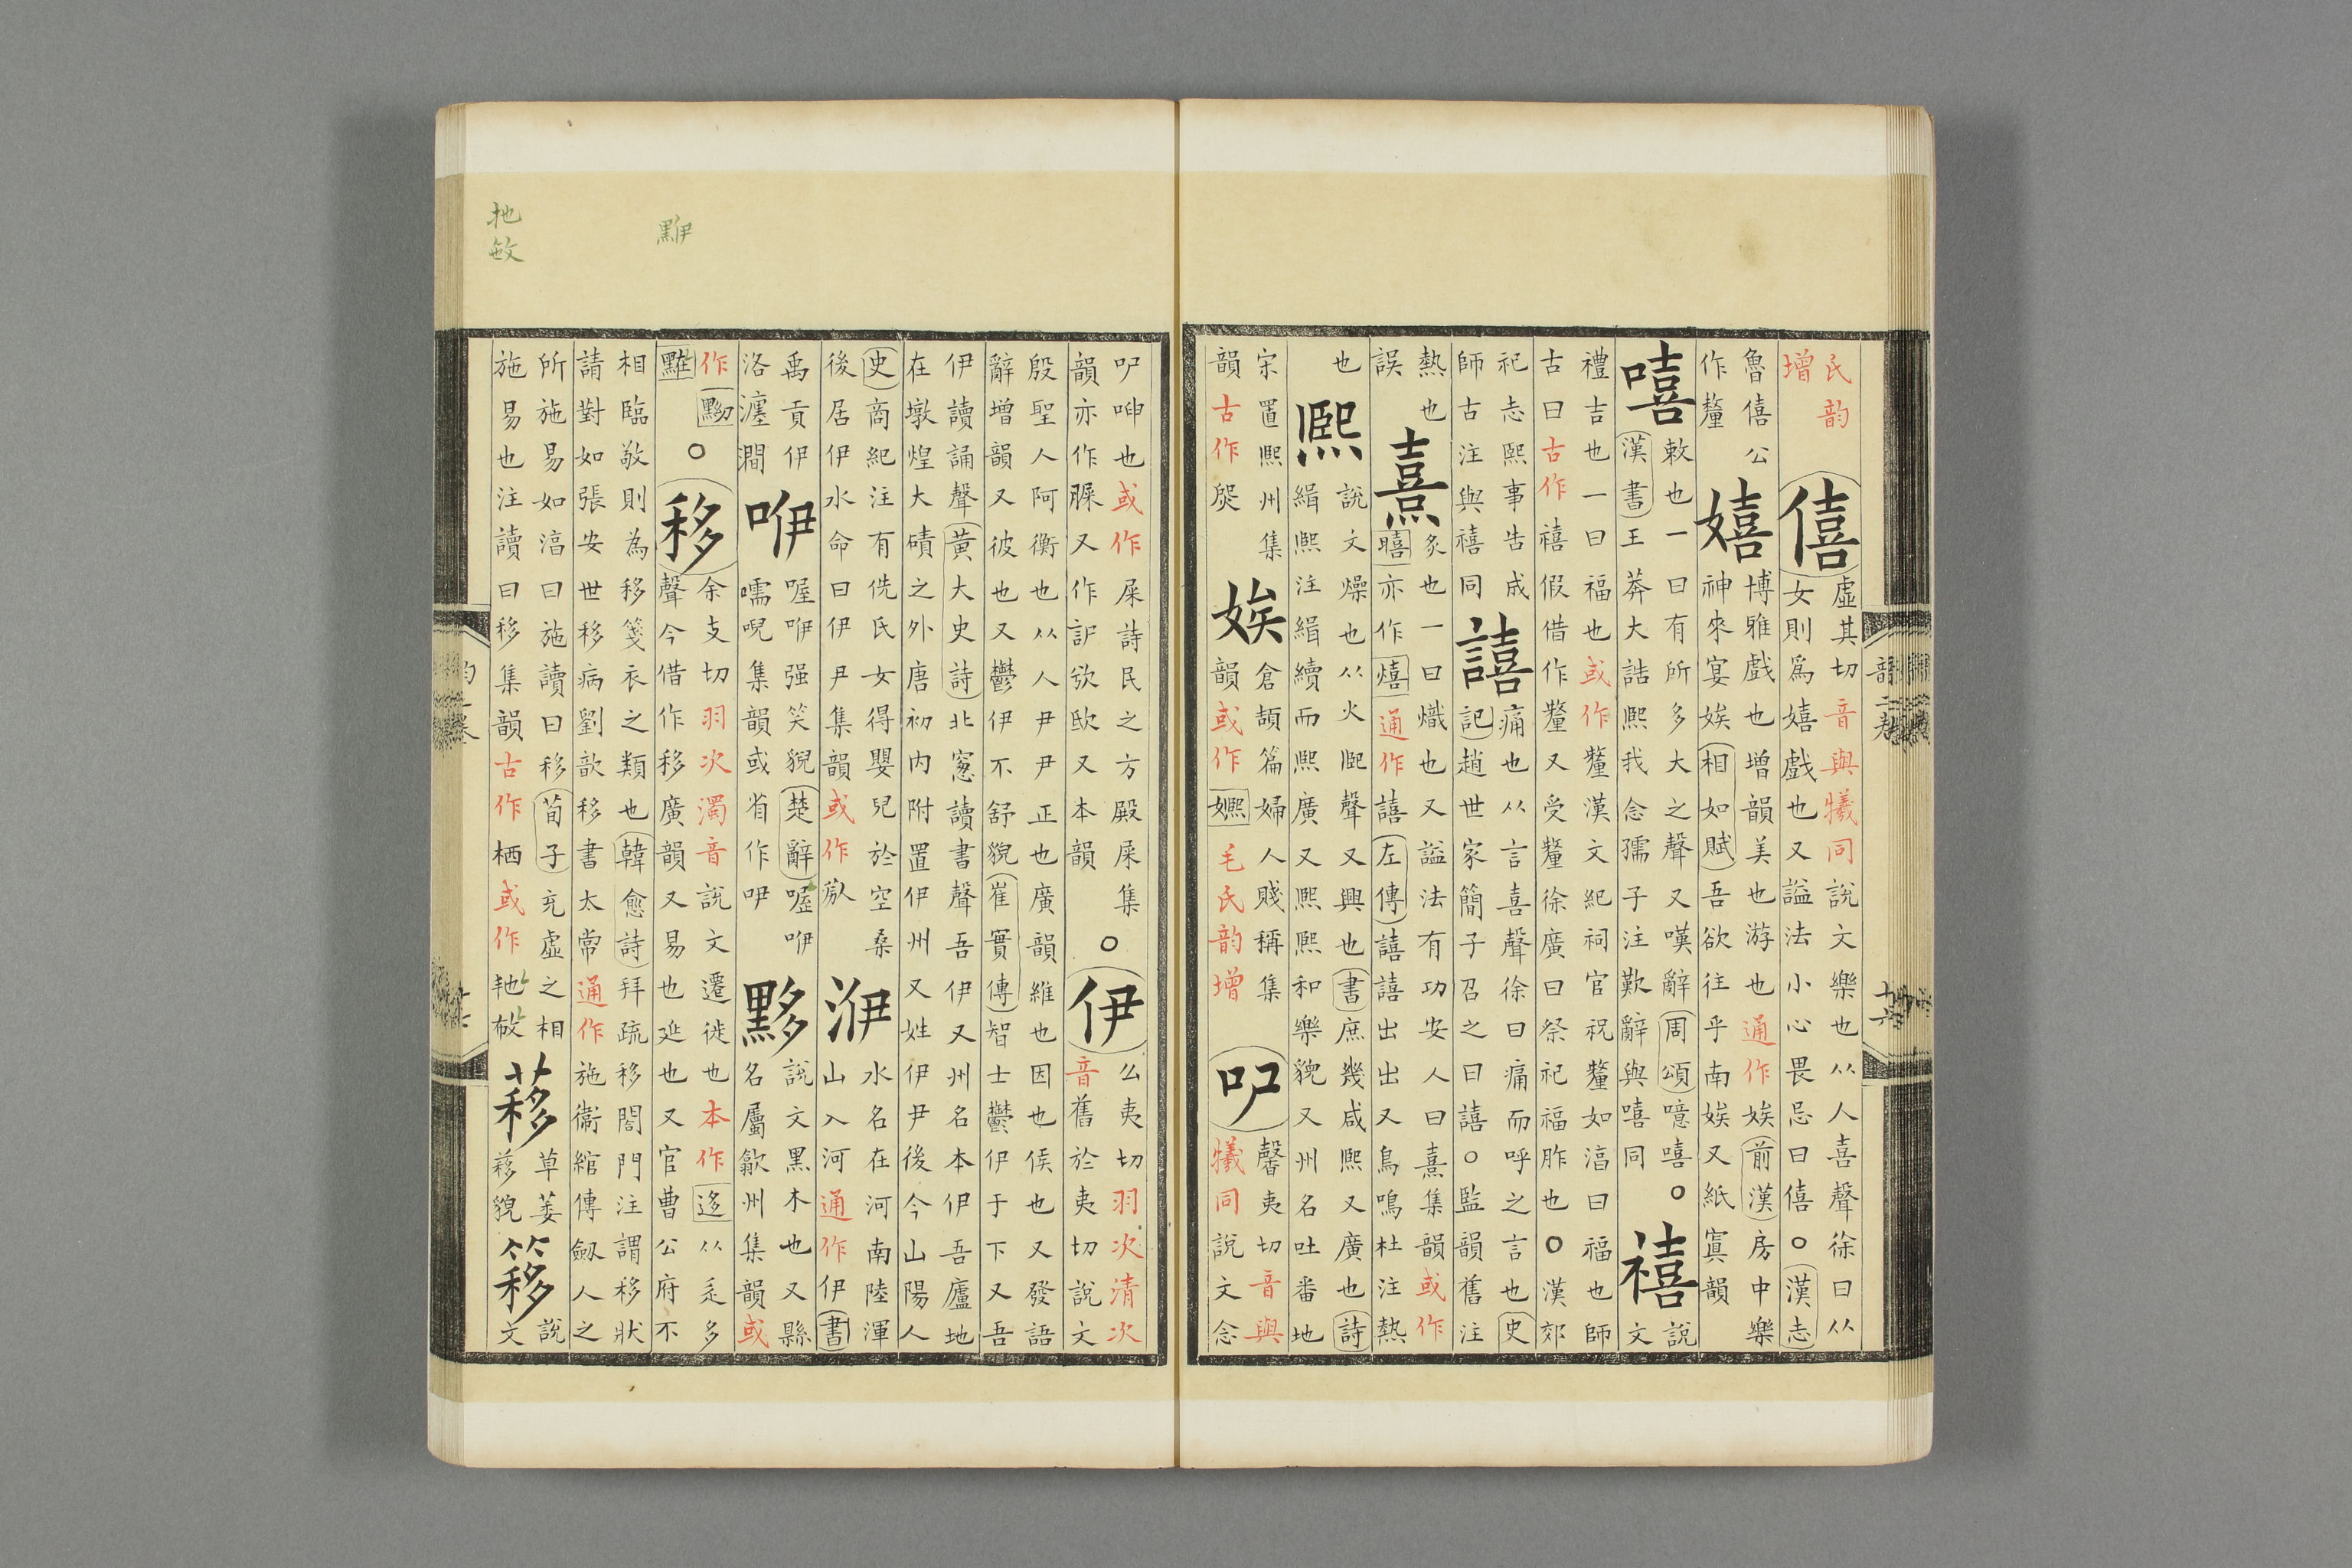 氏韵
增
僖
虛其切音與犧同說文樂也从人喜聲徐曰从
女則爲嬉戲也又謚法小心畏忌曰僖○漢志
魯僖公
作釐
嬉
博雅戲也增韻美也游也通作娭前漢房中樂
神來宴娭相如賦吾欲往乎南娭又紙寘韻
嘻
敕也一曰有所多大之聲又嘆辭周頌噫嘻○
漢書王莽大誥熙我念孺子注歎辭與嘻同
禧
說
文
禮吉也一曰福也或作釐漢文紀祠官祝釐如淳曰福也師
古曰古作禧假借作釐又受釐徐廣曰祭祀福胙也○漢郊
祀志熙事告成
師古注與禧同
譆
痛也从言喜聲徐曰痛而呼之言也史
記趙世家簡子召之曰譆○監韻舊注
熱也
誤
熹
炙也一曰熾也又謚法有功安人曰熹集韻或作
暿亦作熺通作譆左傳譆譆出出又鳥鳴杜注熱
也
熙
說文燥也从火巸聲又興也書庶幾咸熙又廣也詩
緝熙注緝續而熙廣又熙熙和樂貌又州名吐番地
宋置熙州集
韻古作
娭
倉頡篇婦人賤稱集
韻或作㜯毛氏韵增
㕧
馨夷切音與
犧同說文念
韻二卷
十六
㕧呻也或作屎詩民之方殿屎集○
韻亦作脲又作欥欭又本韻
伊
么夷切羽次清次
音舊於夷切說文
殷聖人阿衡也从人尹尹正也廣韻維也因也侯也又發語
辭增韻又彼也又鬱伊不舒貌崔寔傳智士鬱伊于下又吾
伊讀誦聲黃大史詩北窻讀書聲吾伊又州名本伊吾廬地
在墩煌大磧之外唐初內附置伊州又姓伊尹後今山陽人
史商紀注有侁氏女得嬰兒於空桑
後居伊水命曰伊尹集韻或作
洢
水名在河南陸渾
山入河通作伊書
禹貢伊
洛瀍澗
咿
喔咿强笑貌楚辭喔咿
嚅唲集韻或省作吚
黟
說文黑木也又縣
名屬歙州集韻或
作○
移
余支切羽次濁音說文遷徙也本作迻从辵多
聲今借作移廣韻又易也延也又官曹公府不
相臨敬則為移箋表之類也韓愈詩拜疏移閤門注謂移狀
請對如張安世移病劉歆移書太常通作施衞綰傳劒人之
所施易如淳曰施讀曰移荀子充虛之相
施易也注讀曰移集韻古作栖或作
䔟
草萎
䔟貌
簃
說
文